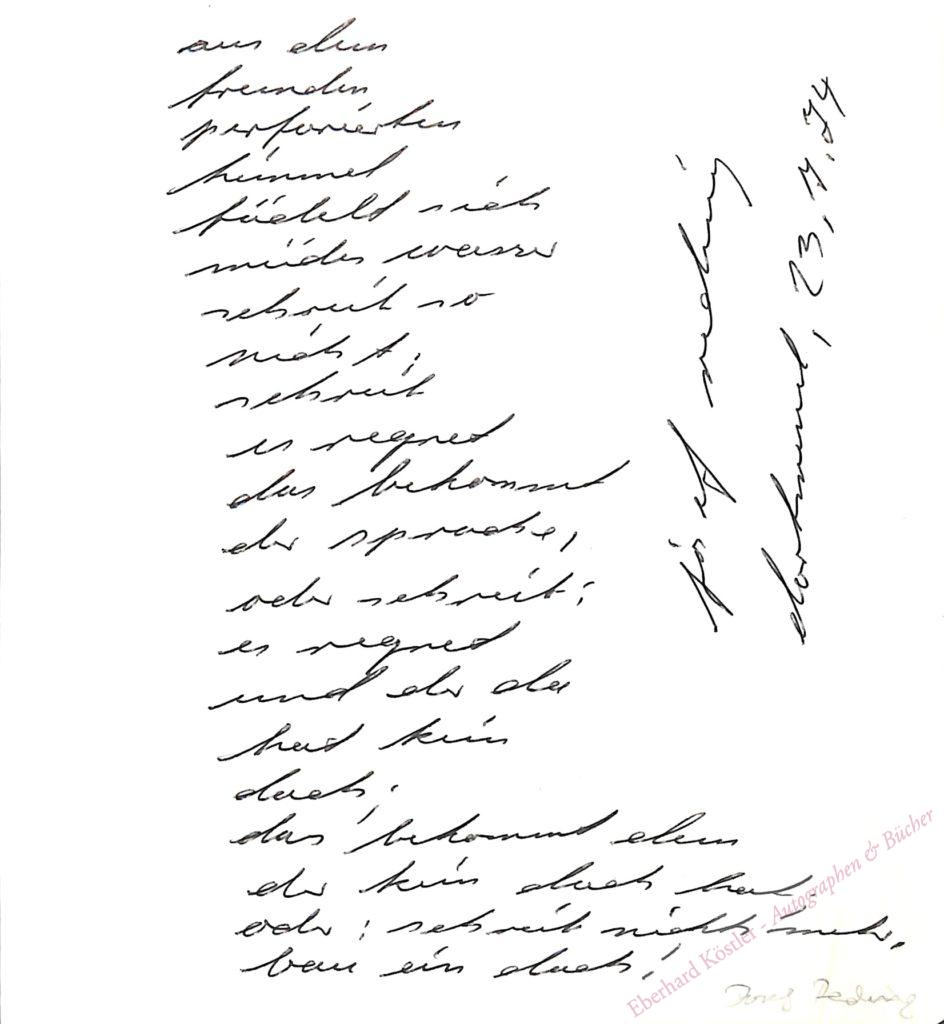 aus dem
fremden
perforierten
himmel
fädelt sich
müdes wasser
schreit so
nicht;
schreit
es regnet
das bekommt
der sprache,
oder schreit:
es regnet
und der da
hat kein
dach;
das bekommt dem
der kein dach hat
oder: schreit nichts mehr,
bau ein dach!
josef reding
dortmund, 23.7.74
Eberhard Köstler - Autographen & Bücher
Josef Reding